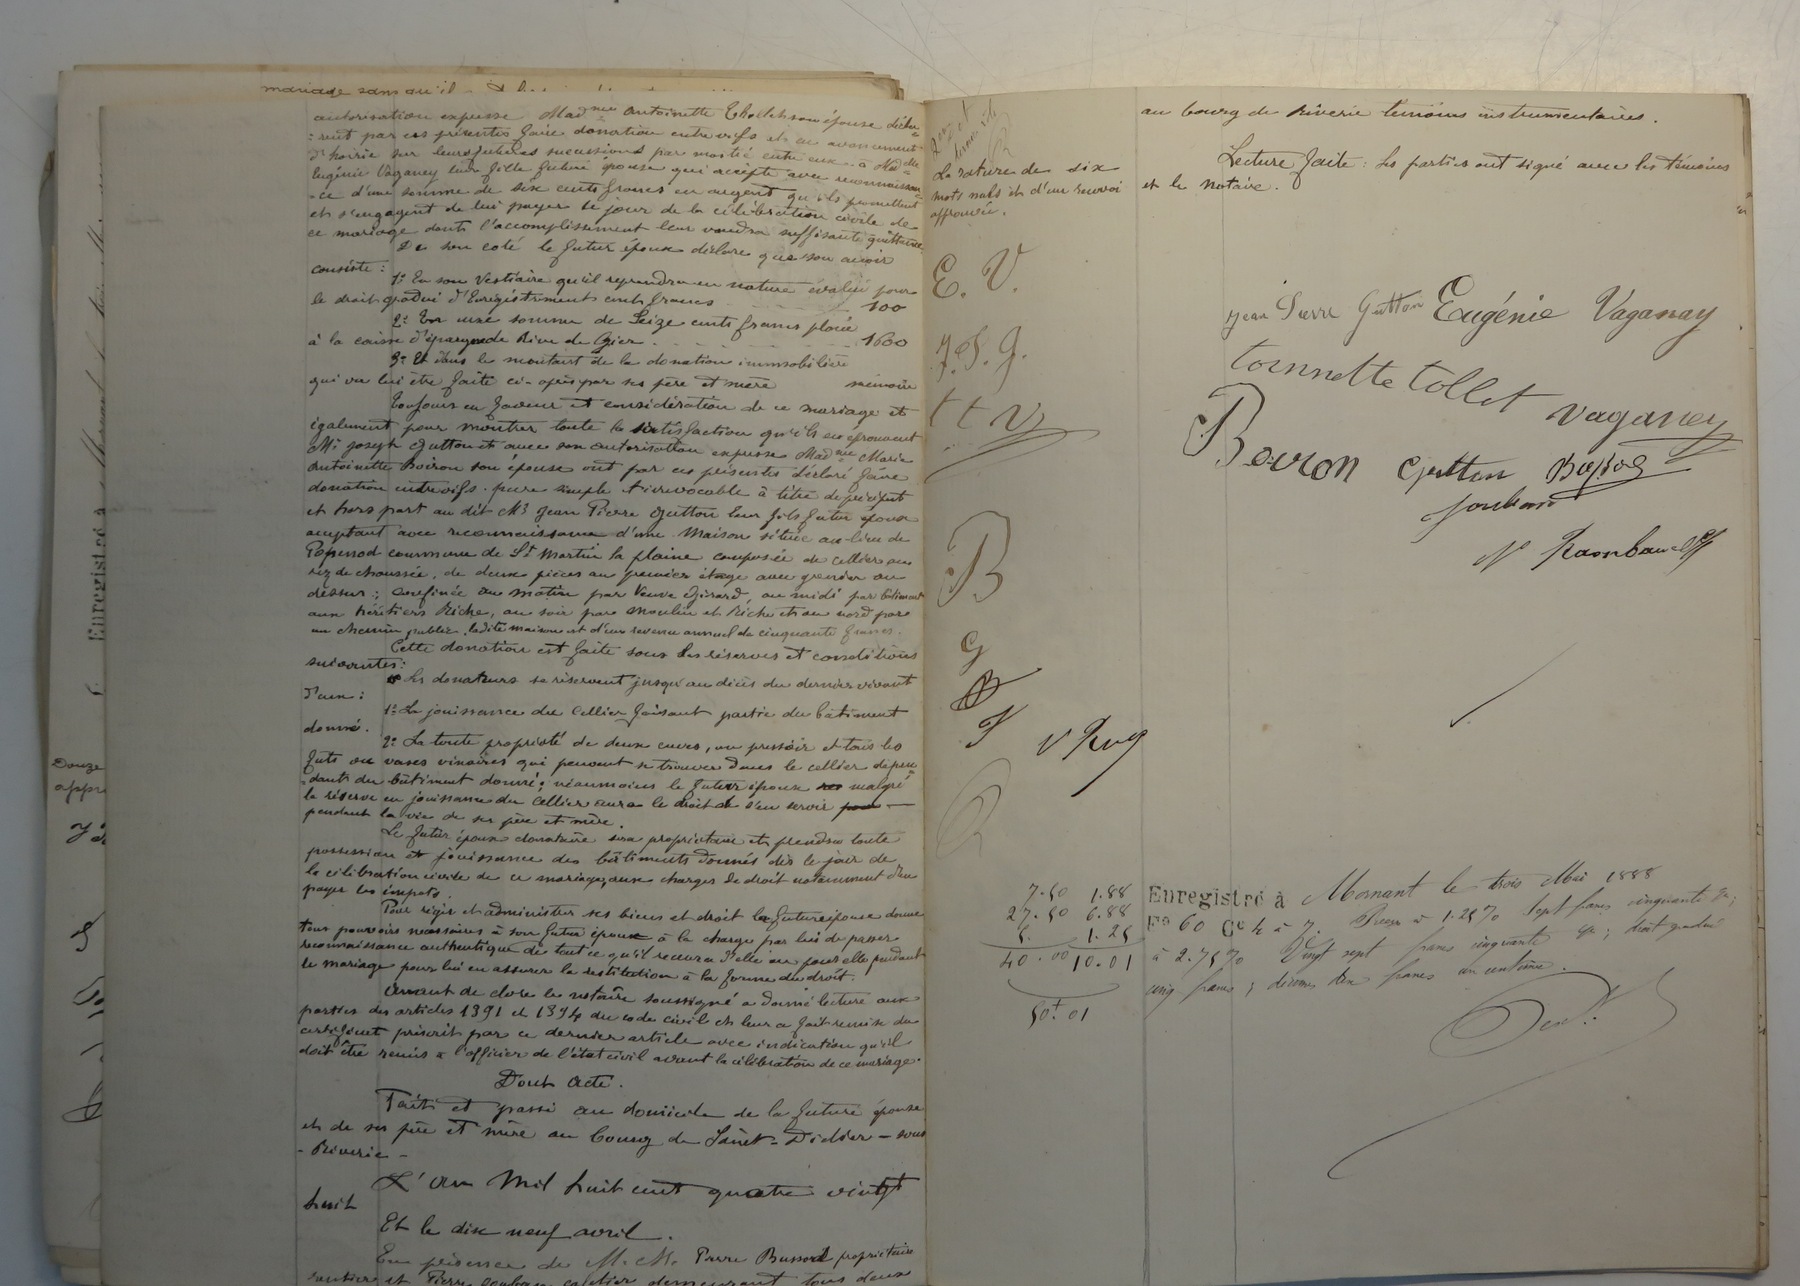 mariage sans qu'il
autorisation expresse Mad.me Antoinette Thollet son épouse décla-
:rent par ces présentes faire donation entre vifs et en avancement
d'hoirie sur leurs futures successions par moitié entre eux à Mad.lle
Eugénie Vaganey leur fille future épouse qui accepte avec reconnaissan-
-ce d'une somme de six cents francs en argent qu'ils promettent
et s'engagent de lui payer le jour de la célébration civile de
ce mariage dont l'accomplissement leur vaudra suffisante quittance
De son coté le futur époux déclare que son avoir
consiste :
1° En son Vestiaire qu'il reprendra en nature évalué pour
le droit gradué d'Enregistrement cent francs 100
2° En une somme de Seize cents francs placée
à la caisse d'épargne de Rive de Gier 1600
3° Et dans le montant de la donation immobilière
qui va lui être faite ci-après par ses père et mère mémoire
Toujours en faveur et considération de ce mariage et
également pour montrer toute la satisfaction qu'ils en éprouvent
Mr. Joseph Gutton et avec son autorisation expresse Mad.me Marie
Antoinette Boiron son épouse ont par ces présentes déclaré faire
donation entre vifs pure simple et irrevocable à titre de préciput
et hors part au dit Mr Jean Pierre Gutton leur fils futur époux
acceptant avec reconnaissance d'une Maison située au lieu de
commune de St Martin la plaine composée de cellier au
rez de chaussée, de deux pièces au premier étage avec grenier au
dessur ; confinée au matin par Veuve Girard, au midi par bâtiment
aux héritiers Riche, au soir par Moulin et Riche et au nord par
un chemin public, ladite maison est d'un revenu annuel de cinquante francs.
Cette donation est faite sous les réserves et conditions
suivantes :
Les donateurs se réservent jusqu'au décès du dernier vivant
d'eux :
1° La jouissance du Cellier faisant partie du bâtiment
donné.
2° La toute propriété de deux cuves, un pressoir et tous les
futs ou vases vinaires qui peuvent se trouver dans le cellier dépen-
-dant du bâtiment donné ; néanmoins le futur époux malgré
la réserve en jouissance du Cellier aura le droit de s'en servir
pendant la vie de ses père et mère.
Le futur époux donataire sera propriétaire et prendra toute
possession et jouissance des bâtiments donnés dès le jour de
la célébration civile de ce mariage, aux charges de droit notamment d'en
payer les impots.
Pour régir et administrer ses biens et droit la future épouse donne
tous pouvoirs nécessaires à son futur époux à la charge par lui de passer
reconnaissance authentique de tout ce qu'il recevra d'elle ou pour elle pendant
le mariage pour lui en assurer la restitution à la forme du droit.
Avant de clore le notaire soussigné a donné lecture aux
parties des articles 1391 et 1394 du code civil et leur a fait remise du
certificat prescrit par ce dernier article avec indication qu'il
doit être remis à l'officier de l'état civil avant la célébration de ce mariage.
Dont Acte.
Fait et passé au domicile de la future épouse
et de ses père et mère au bourg de Saint-Didier-sous
-Riverie-
L'an Mil huit cent quatre vingt
huit
Et le dix neuf avril.
En présence de M.M. Pierre Bussod propriétaire
rentier et Pierre demeurant tous deux
au bourg de Riverie temoins instrumentaires.
Lecture faite : les parties ont signé avec les témoins
et le notaire.
La rature de dix
mots nuls et d'un renvoi
approuvée.
E. V.
J. P. G.
t t V
B
G
Jean Pierre Gutton Eugénie Vaganay
tonnette tollet vaganey
Boiron Gutton Bussod
7.50 1.88
27.50 6.88
5. 1.25
40.00 10.01
50f.01
Enregistré à Mornant le trois Mai 1888
Fo 60 Ce 4 à 7. Reçu à 1.25% Sept francs cinquante ce;
à 2.75% Vingt sept francs cinquante ce; droit gradué
cinq francs ; décimes dix francs un centime.
Enregistré à
Douze